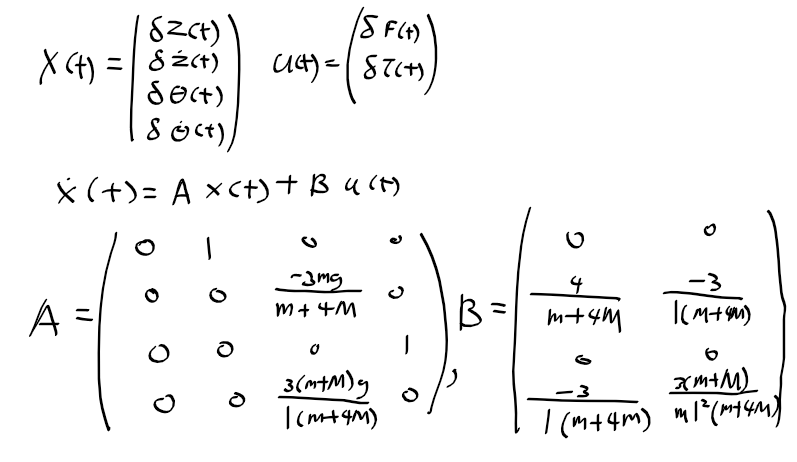 X(t) = (δz(t) δż(t) δθ(t) δθ̇(t)) u(t) = (δF(t) δτ(t))
ẋ(t) = A x(t) + B u(t)
A = (0 1 0 0; 0 0 -3mg/(m+4M) 0; 0 0 0 1; 0 0 3(m+M)g/(l(m+4M)) 0), B = (0 0; 4/(m+4M) -3/(l(m+4M)); 0 0; -3/(l(m+4M)) 3(m+M)/(ml²(m+4M)))